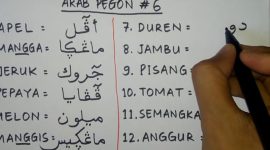 ARAB PEGON #6
APEL = أڤل 7. DUREN = دو
MANGGA = ماڠڮا 8. JAMBU =
JERUK = جٓروك 9. PISANG =
PEPAYA = ڤڤايا 10. TOMAT =
MELON = ميلون 11. SEMANGKA
MANGGIS = ماڠڮيس 12. ANGGUR =